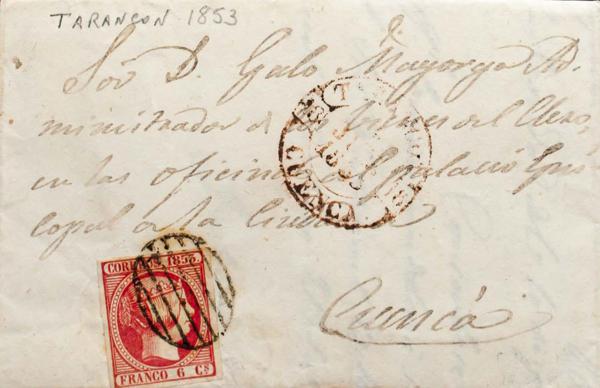 TARANCON 1853
Sór D. Galo Mayorga Ad-
ministrador de los bienes del Clero,
en las oficinas del palacio Epis-
copal de la Ciudad
Cuenca
CUENCA
1853
CORREOS 1853
FRANCO 6 CS